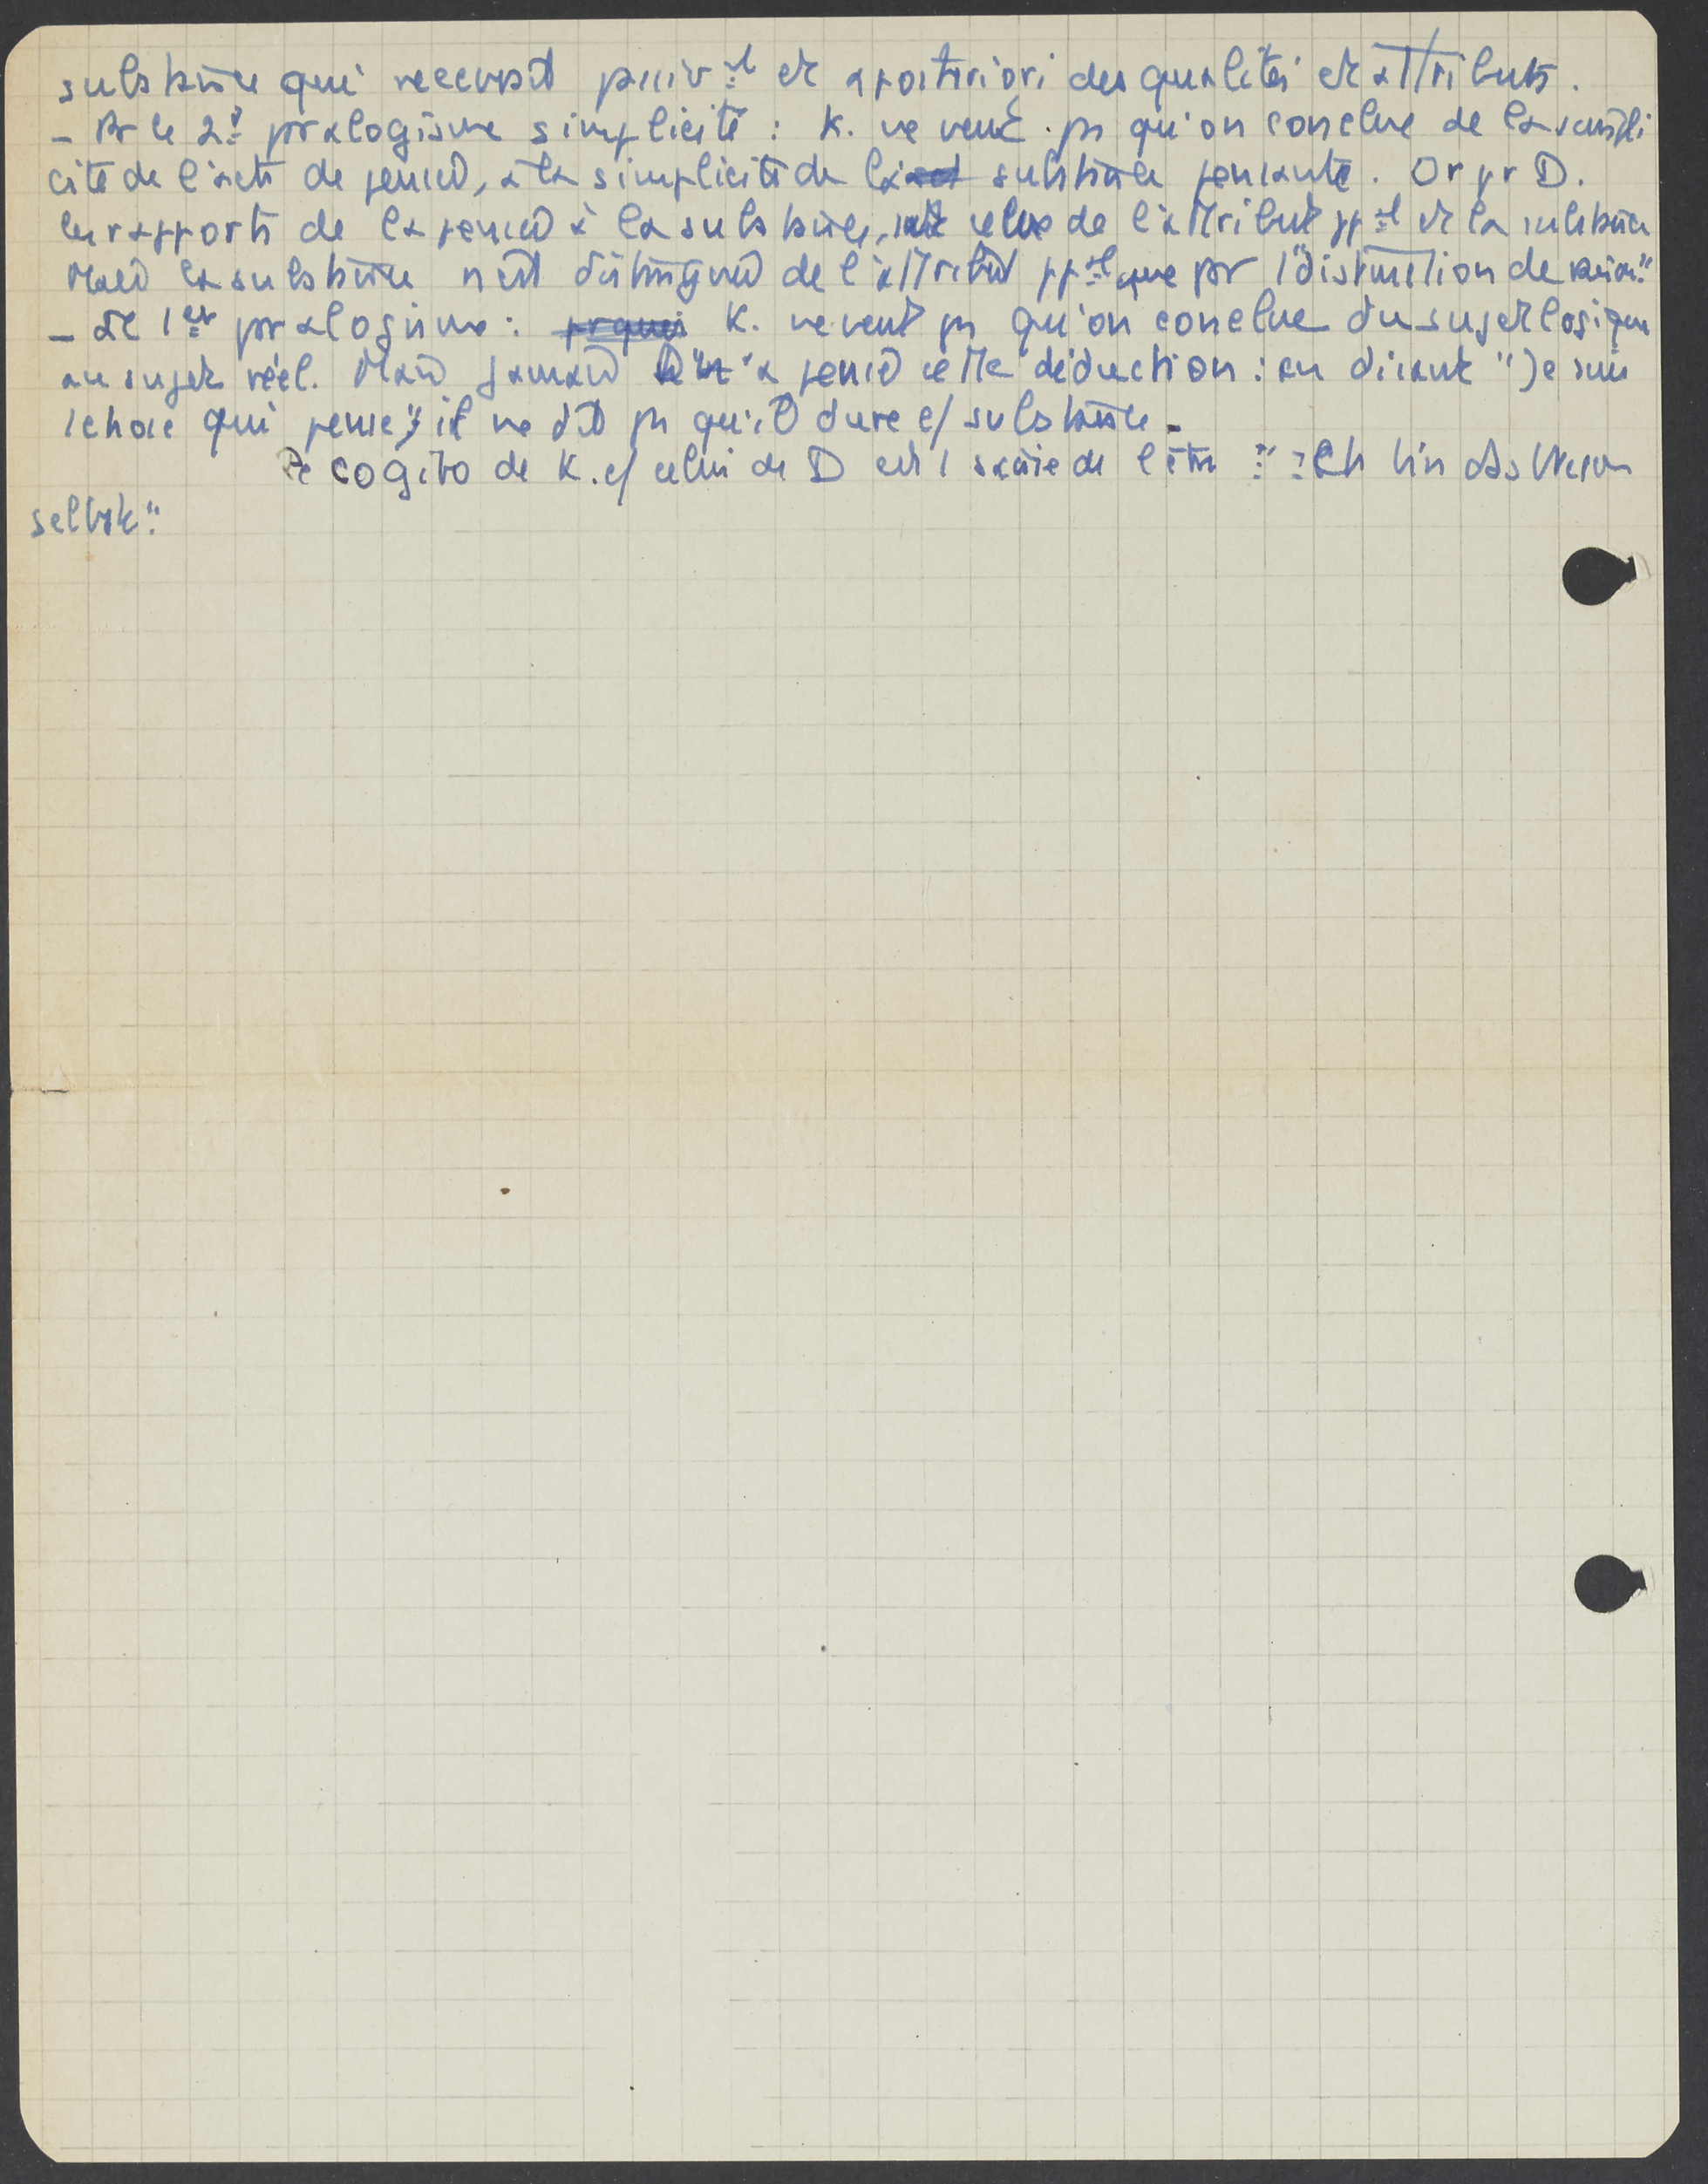 substance qui recevrait passiv^t et a posteriori des qualités et attributs.
- Pr le 2^e pralogisme simplicité : K. ne veut ps qu'on conclue de la simpli
cité de l'acte de pensée, à la simplicité de la substance pensante. Or pr D.
les rapports de la pensée à la substance, celui de l'attribut pp^al et la substance
Mais la substance n'est distinguée de l'attribut pp^al que pr 1 "distinction de raison"
- Le 1^er pralogisme : pr quoi K. ne veut ps qu'on conclue du sujet logique
au sujet réel. Mais jamais D n'a pensé cette déduction : en disant "Je suis
1 chose qui pense", il ne dit ps qu'il dure c/ substance.
Le cogito de K. c/ celui de D est 1 saisie de l'être : "Ich bin das Wesen
selbst".